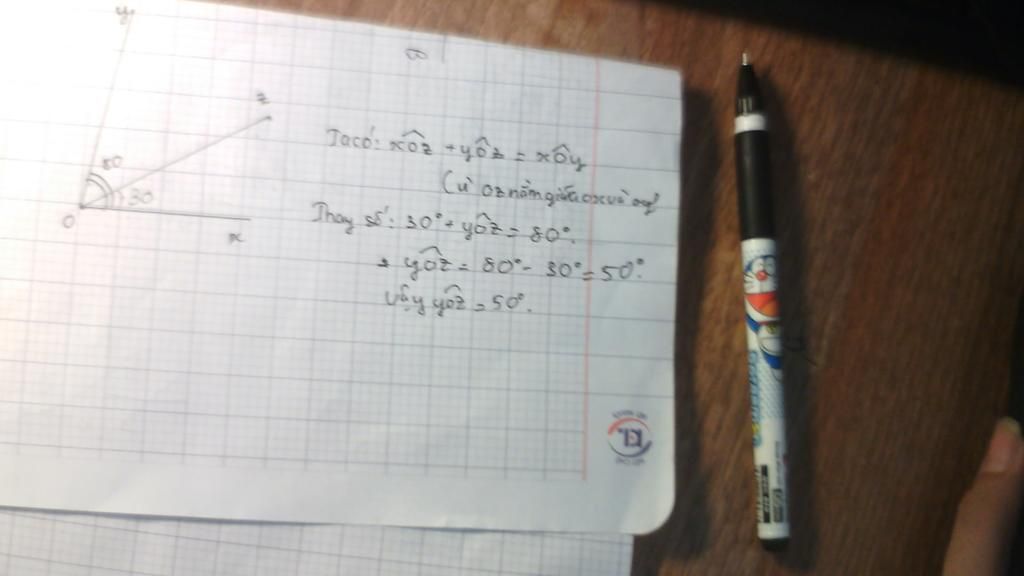 y
z
80
30
O
x
Ta có: xÔz + yÔz = xÔy
(vì oz nằm giữa ox và oy)
Thay số: 30° + yÔz = 80°.
yÔz = 80° - 30° = 50°.
Vậy yÔz = 50°.
KL